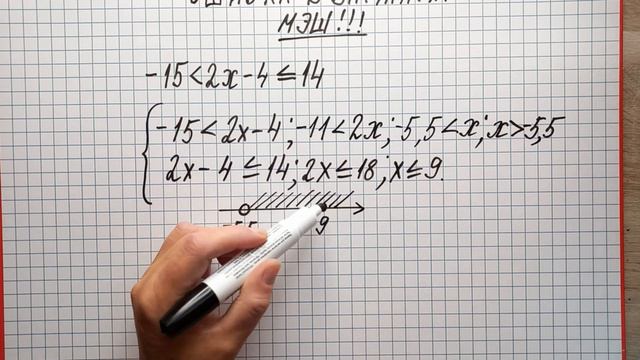 МЭШ!!!
-15<2x-4≤14
-15<2x-4; -11<2x; -5,5<x; x>-5,5
2x-4≤14; 2x≤18; x≤9.
9